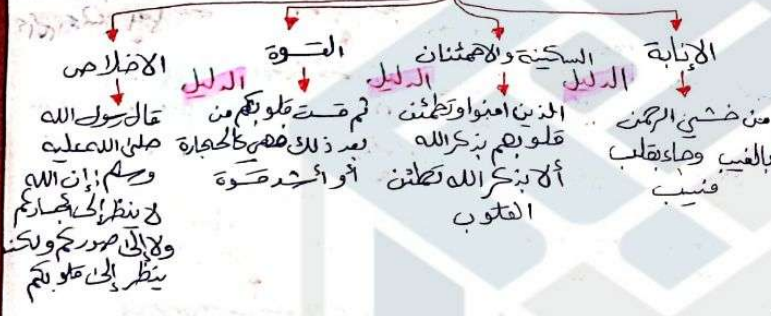 الإنابة
الدليل
من خشي الرحمن
بالغيب وجاء بقلب
منيب
السكينة والاطمئنان
الدليل
الذين امنوا وتطمئن
قلوبهم بذكر الله
ألا بذكر الله تطمئن
القلوب
القسوة
الدليل
ثم قست قلوبكم من
بعد ذلك فهي كالحجارة
أو أشد قسوة
الاخلاص
قال رسول الله
صلى الله عليه
وسلم: إن الله
لا ينظر إلى أجسادكم
ولا إلى صوركم ولكن
ينظر إلى قلوبكم